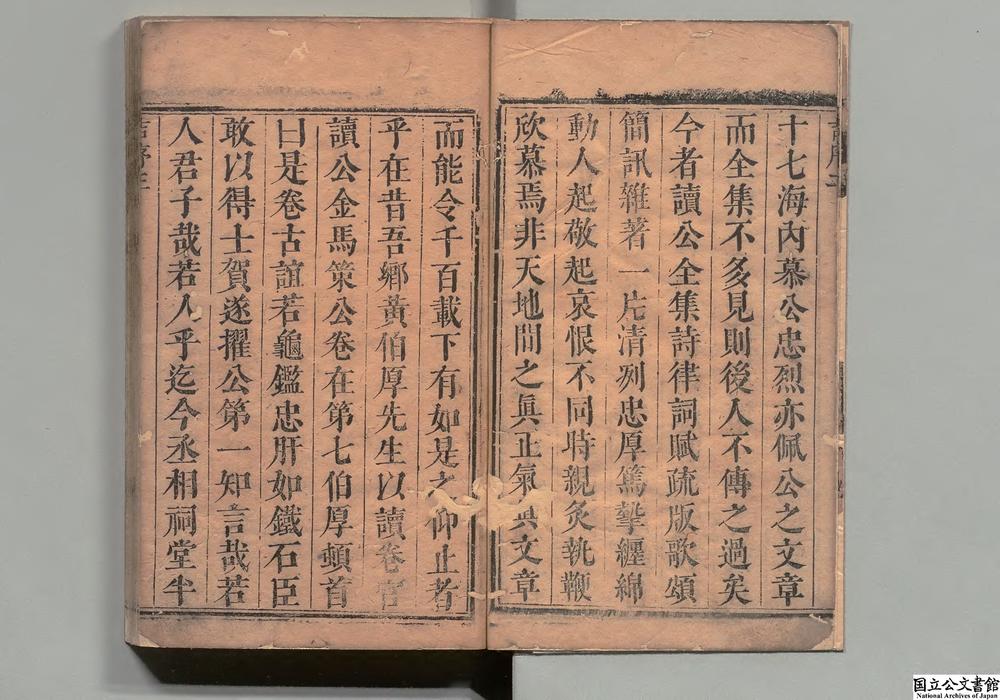 十七海內慕公忠烈亦佩公之文章
而全集不多見則後人不傳之過矣
今者讀公全集詩律詞賦疏版歌頌
簡訊雜著一片清冽忠厚篤摯纏綿
動人起敬起哀恨不同時親炙執鞭
欣慕焉非天地間之眞正氣與文章
而能令千百載下有如是之仰止者
乎在昔吾鄉黃伯厚先生以讀卷官
讀公金馬策公卷在第七伯厚頓首
曰是卷古誼若龜鑑忠肝如鐵石臣
敢以得士賀遂擢公第一知言哉若
人君子哉若人乎迄今丞相祠堂半
国立公文書館
National Archives of Japan